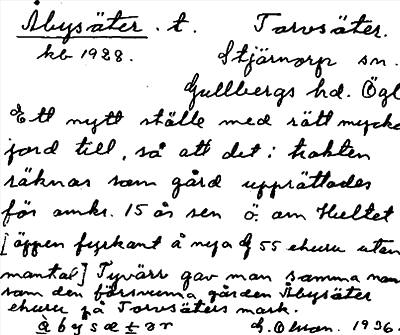 Åbysäter. t. Torvsäter.
kb 1928. Stjärnorp sn.
Gullbergs hd. Ögl
Ett nytt ställe med rätt mycke
jord till, så att det i trakten
räknas som gård upprättades
för omkr. 15 år sen ö. om Hultet
[öppen fyrkant å nya G 55 ehuru utan
mantal] Tyvärr gav man samma nam
som den försvunna gården Åbysäter
ehuru på Torvsäters mark.
àbysætər G. Olson. 1936.